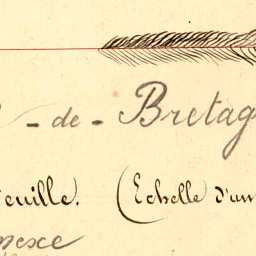 - de - Bretag
feuille. (Echelle d'un
nexe